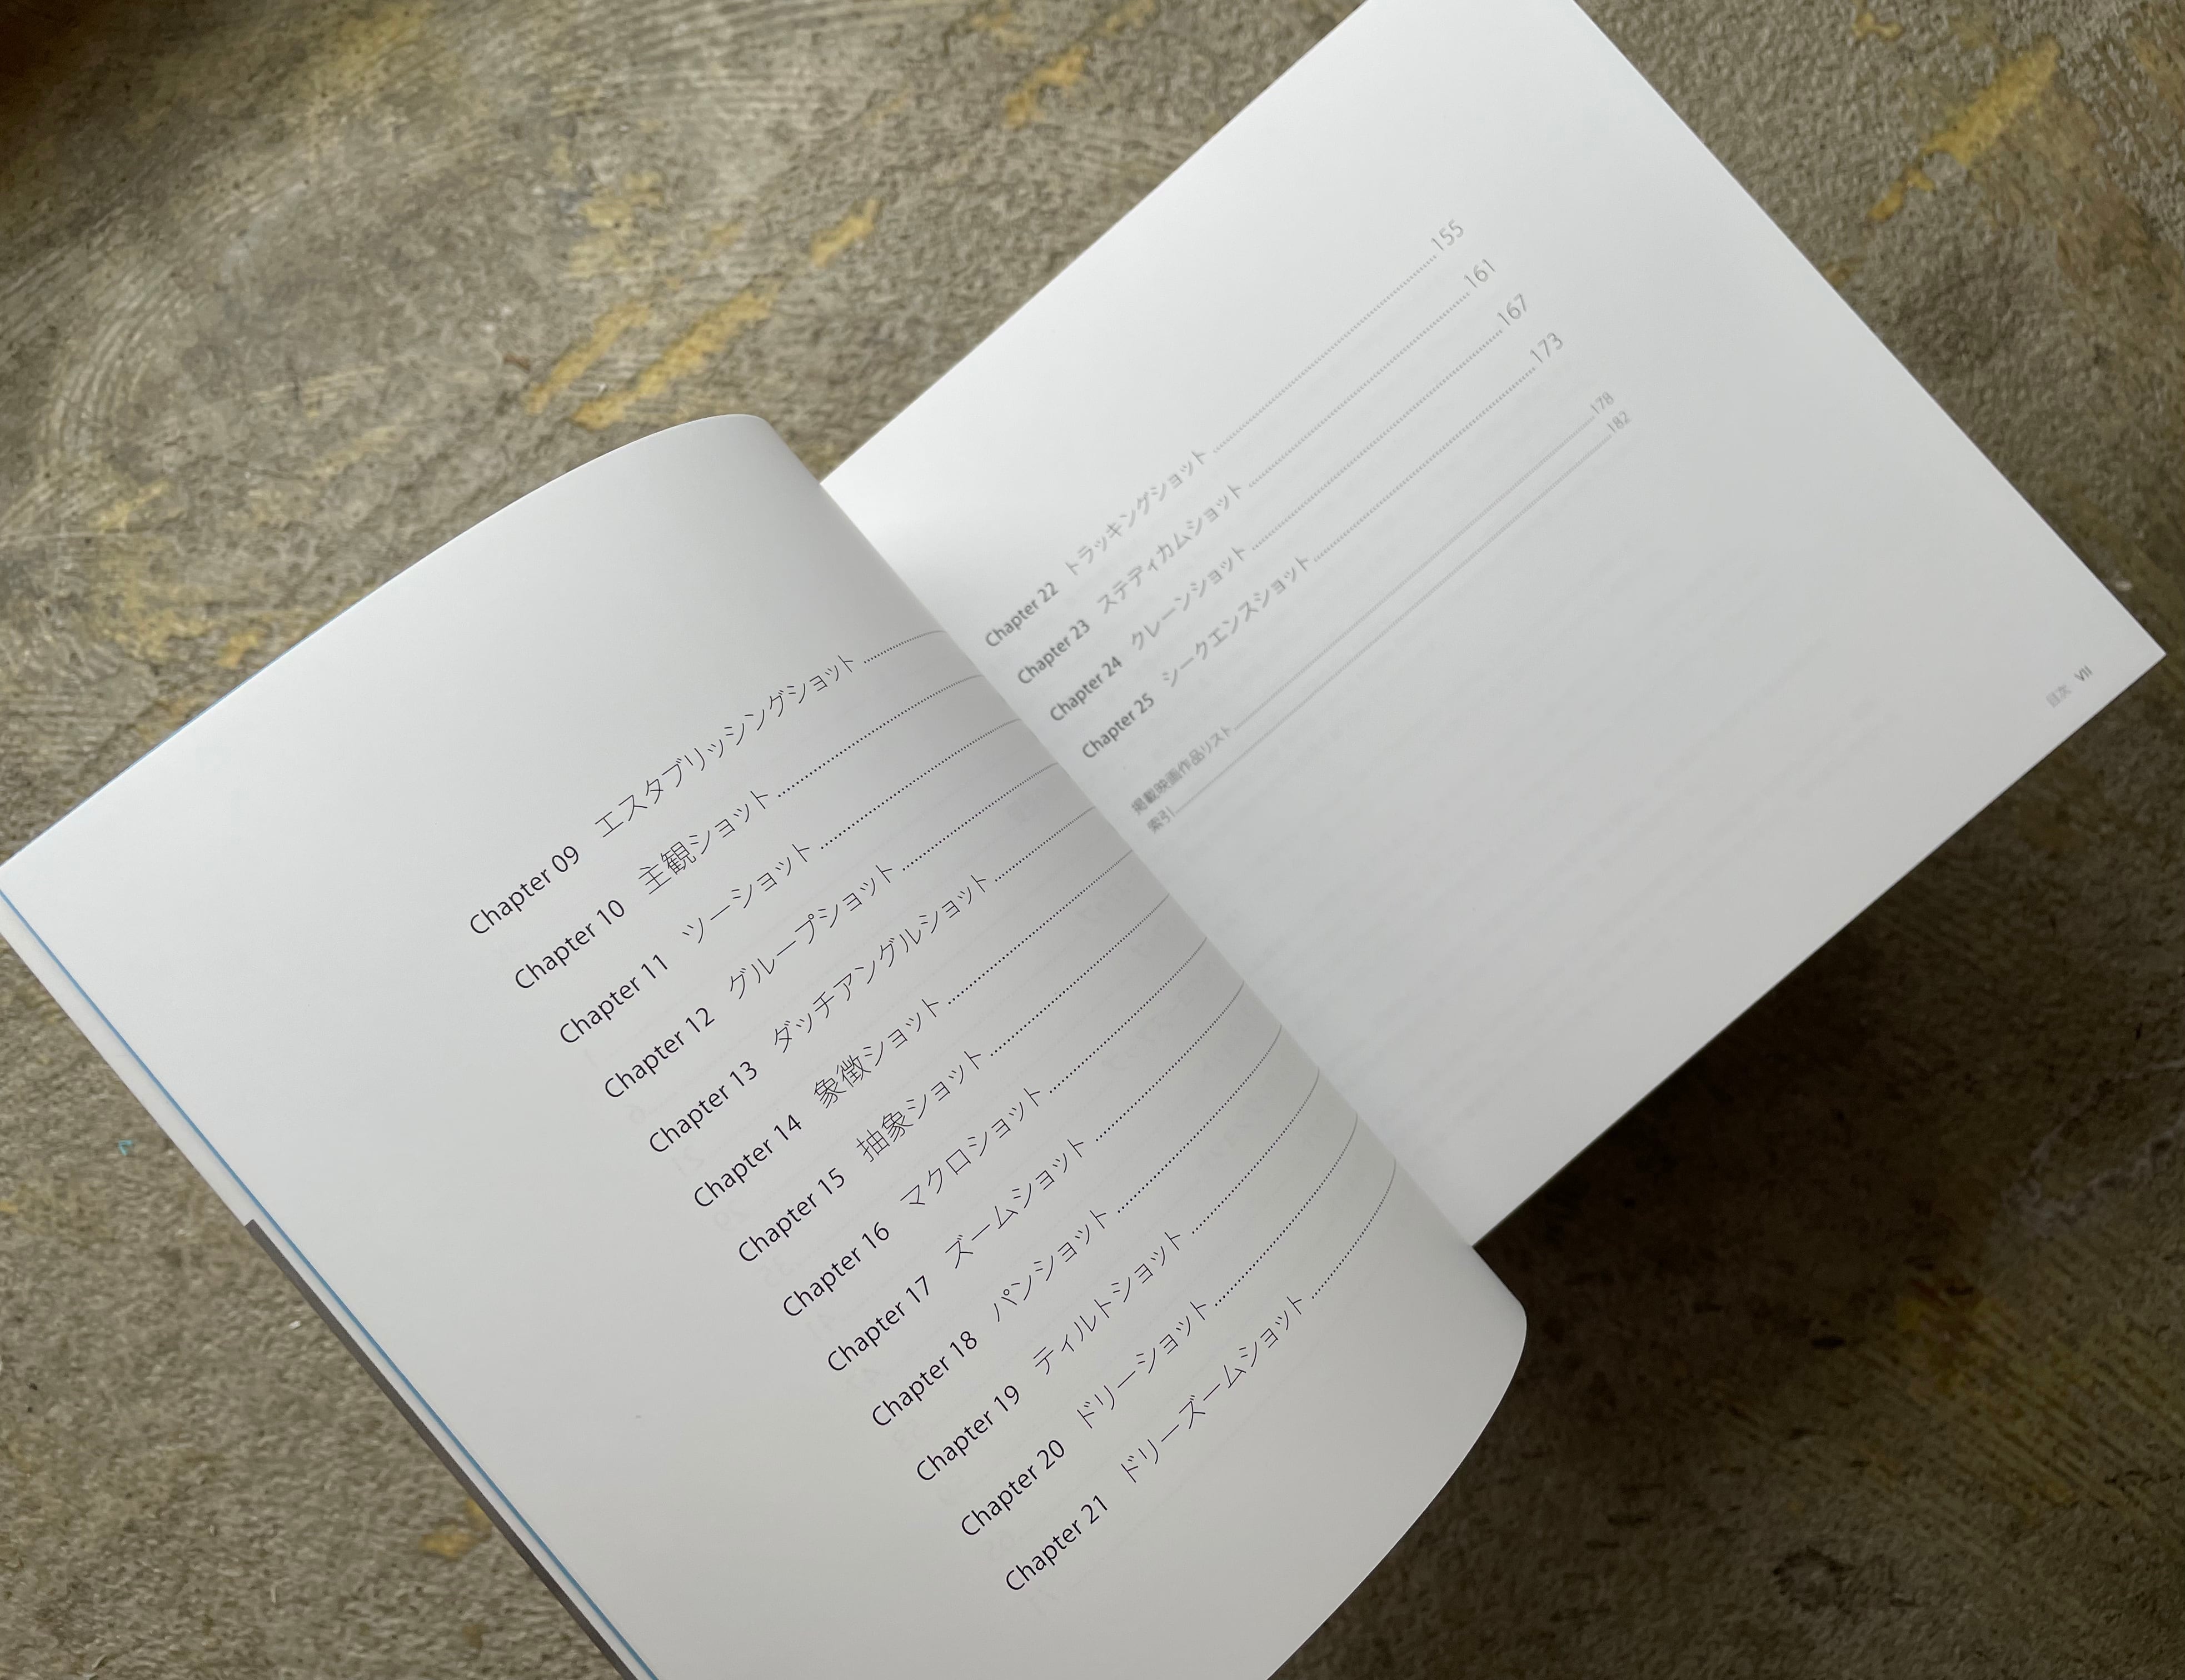 Chapter 09 エスタブリッシングショット
Chapter 10 主観ショット
Chapter 11 ツーショット
Chapter 12 グループショット
Chapter 13 ダッチアングルショット
Chapter 14 象徴ショット
Chapter 15 抽象ショット
Chapter 16 マクロショット
Chapter 17 ズームショット
Chapter 18 パンショット
Chapter 19 ティルトショット
Chapter 20 ドリーショット
Chapter 21 ドリーズームショット
Chapter 22 トラッキングショット 155
Chapter 23 ステディカムショット 161
Chapter 24 クレーンショット 167
Chapter 25 シークエンスショット 173
掲載映画作品リスト 178
索引 182
目次 VII